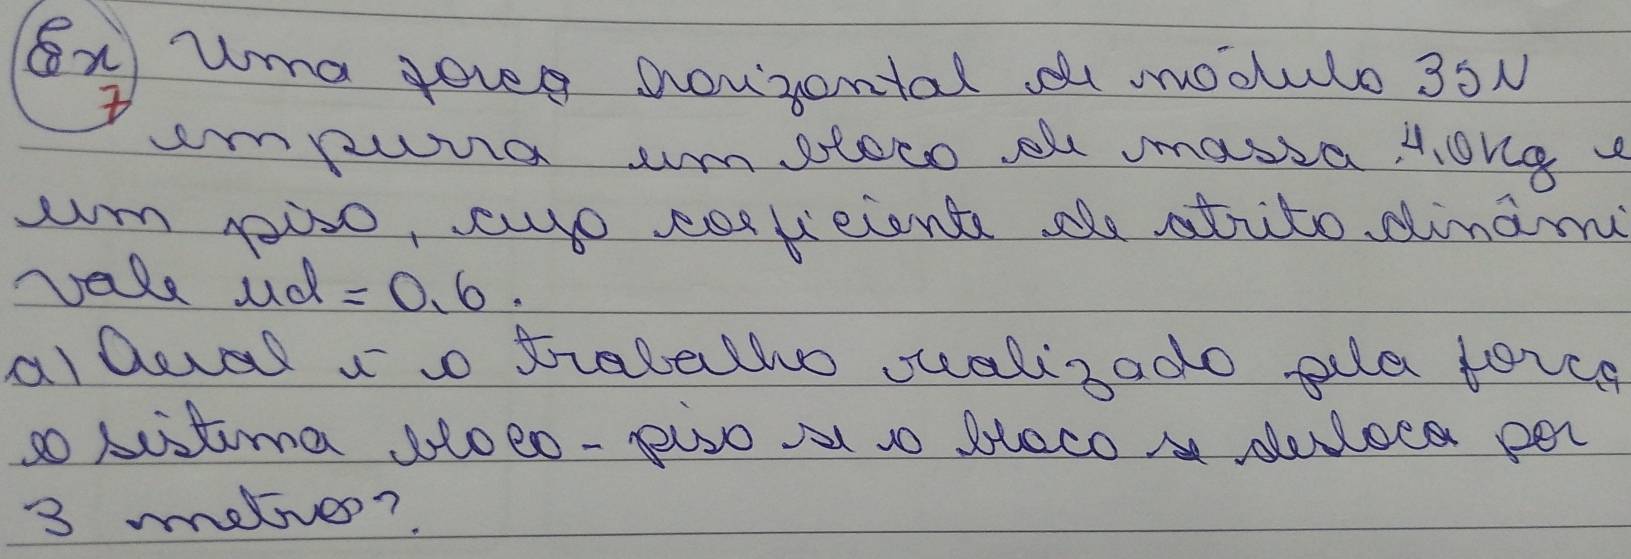 Ex 7 Uma força horizontal de módulo 35N
empurra um bloco de massa 4,0kg e
um piso, cujo coeficiente de atrito dinâmi
vale μd = 0,6.
a) Qual é o trabalho realizado pela força
o sistema bloco-piso se o bloco se desloca por
3 metros?